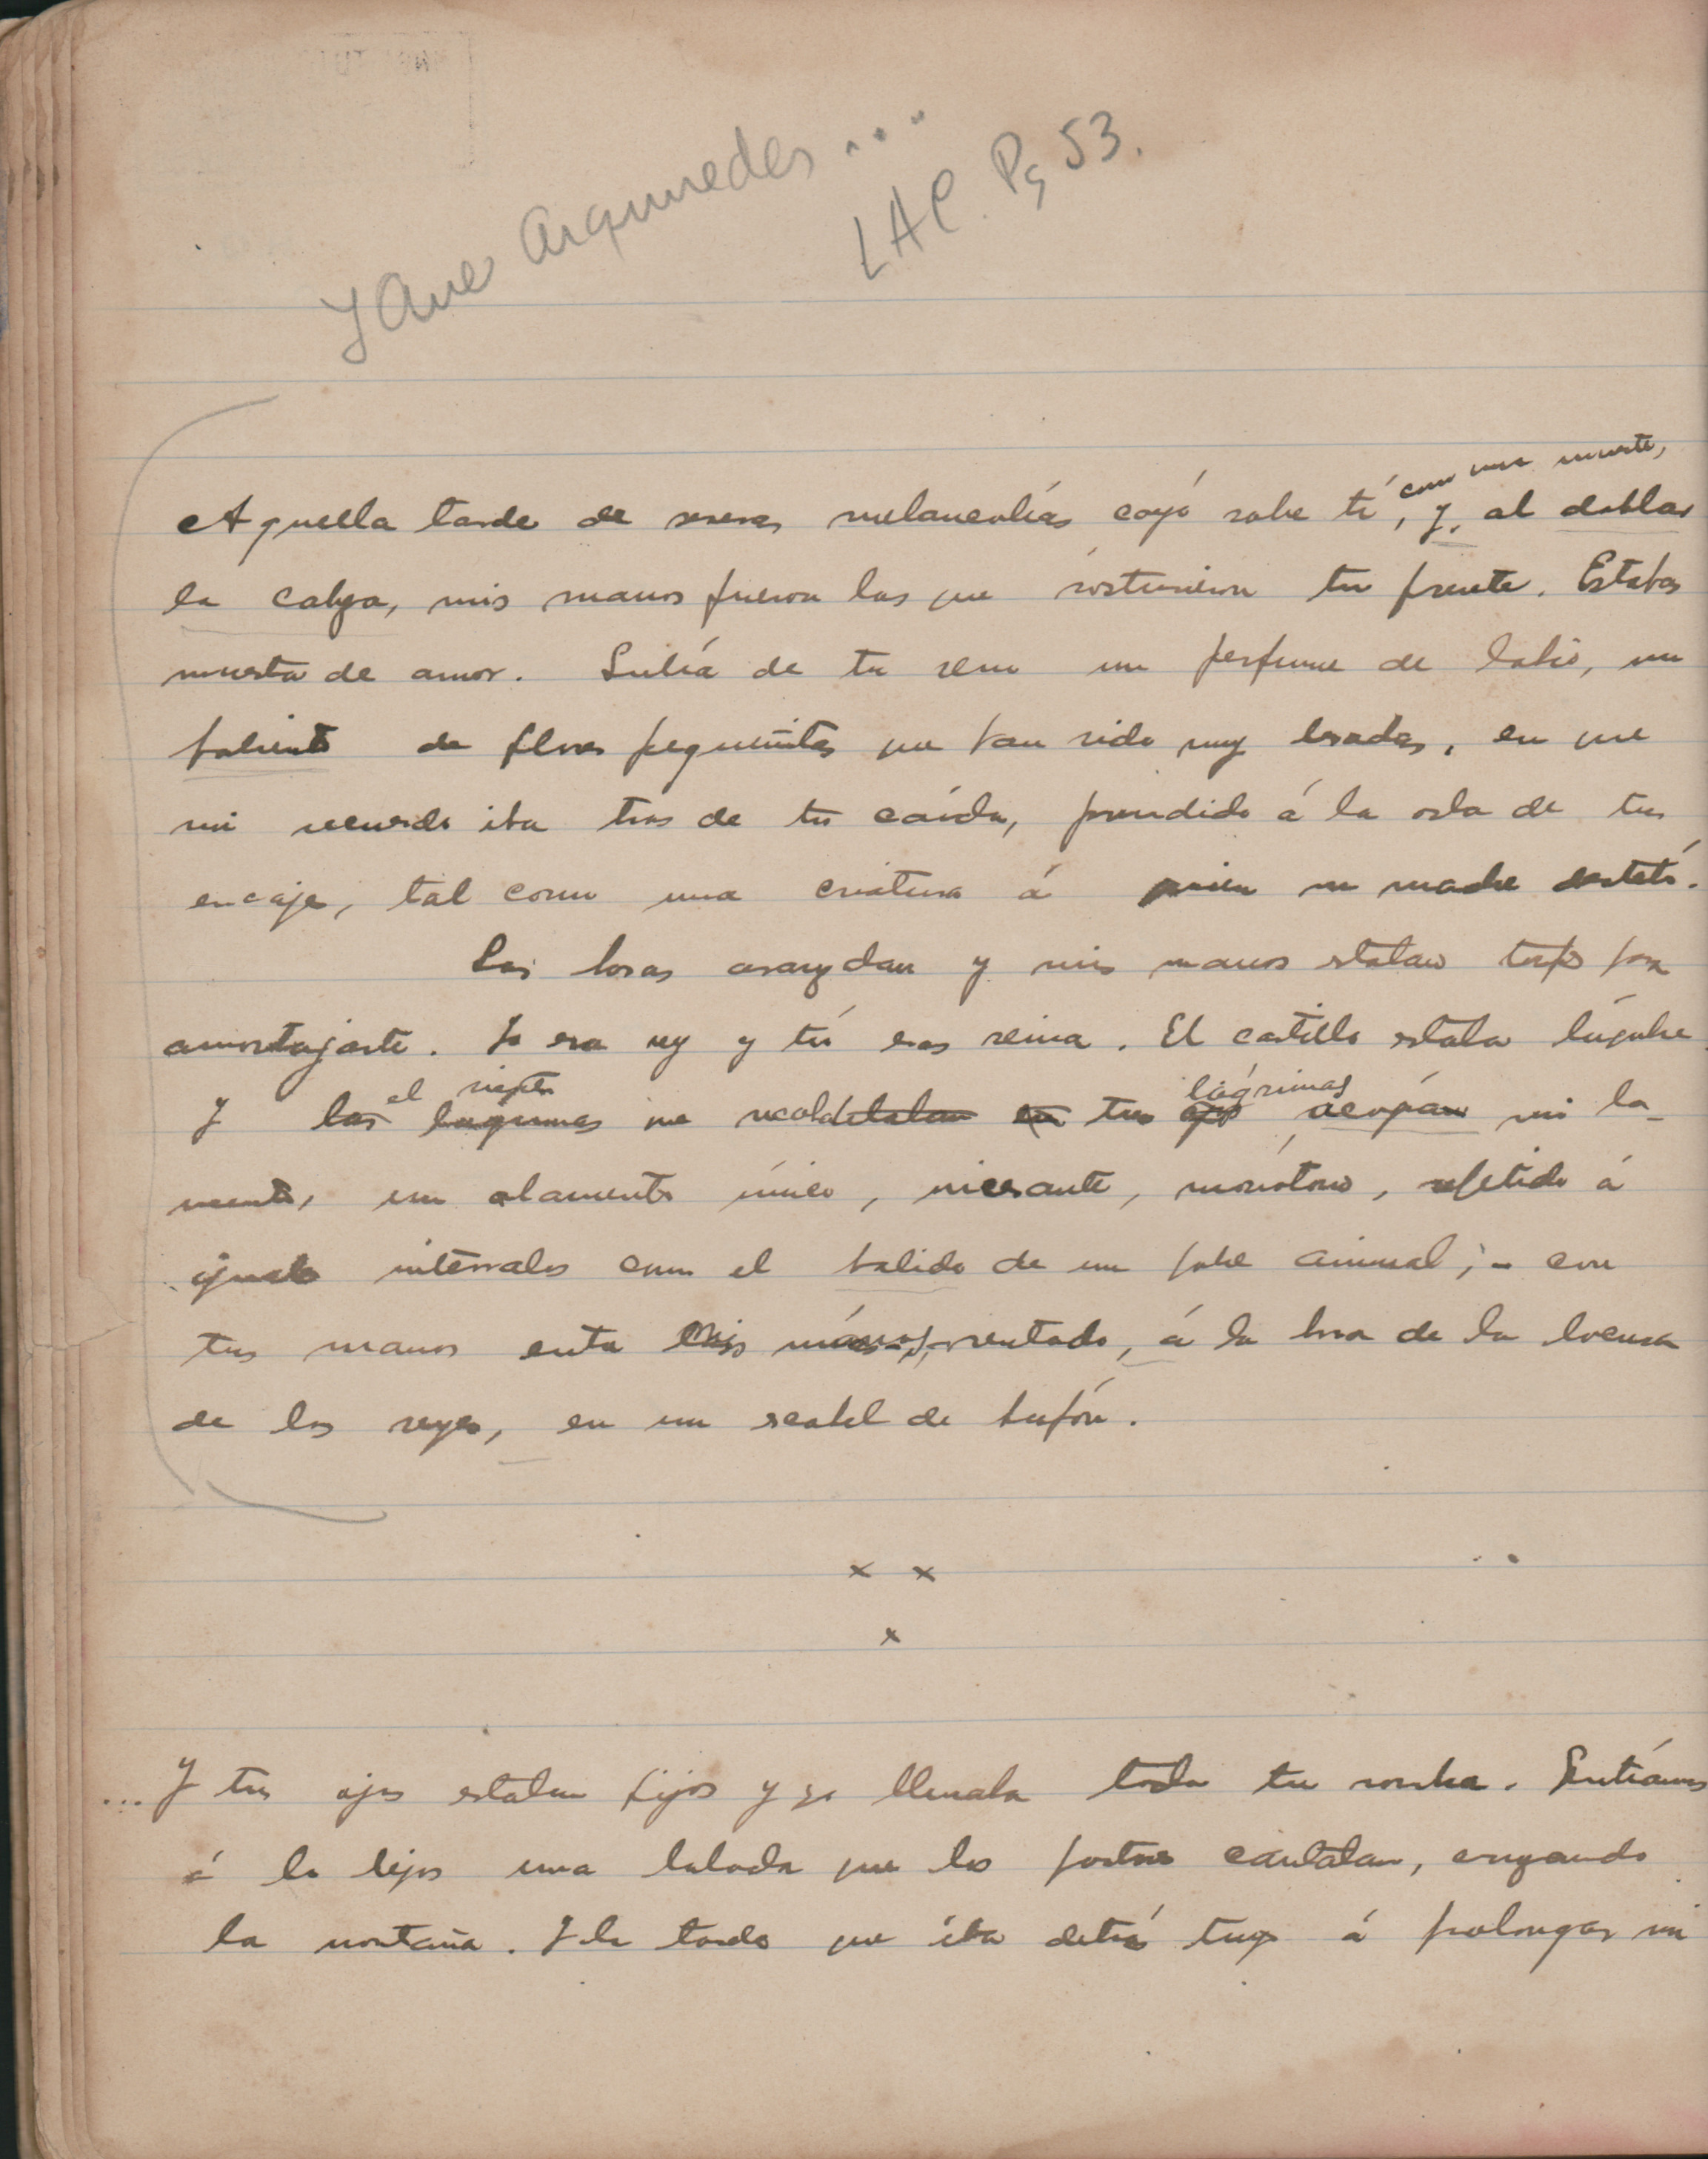 Y Que Arquimedes...
LAC. Pg 53.
como una muerte,
Aquella tarde de serenas melancolías cayó sobre tí, y, al doblar
la cabeza, mis manos fueron las que sostuvieron tu frente. Estabas
muerta de amor. Subía de tu seno un perfume de labio, un
de flores pequeñitas que han sido muy besadas, en que
mi recuerdo iba tras de tu caída, prendido á la orla de tus
encajes, tal como una criatura á quien su madre destetó.
Las horas avanzaban y mis manos estaban torpes para
amortajarte. Yo era rey y tú eras reina. El castillo estaba lúgubre.
el lágrimas
Y las lágrimas que en tus ojos mi la-
mento, un lamento único, incesante, monótono, repetido á
iguales intérvalos como el balido de un pobre animal;- con
tus manos entre mis manos, sentado, á la hora de la locura
de los reyes, en un escabel de bufón.
x x
x
...Y tus ojos estaban fijos y yo llenaba toda tu sombra. Sentíamos
á lo lejos una balada que los pastores cantaban, cruzando
la montaña. Y la tarde que iba detrás tuyo á prolongar mi